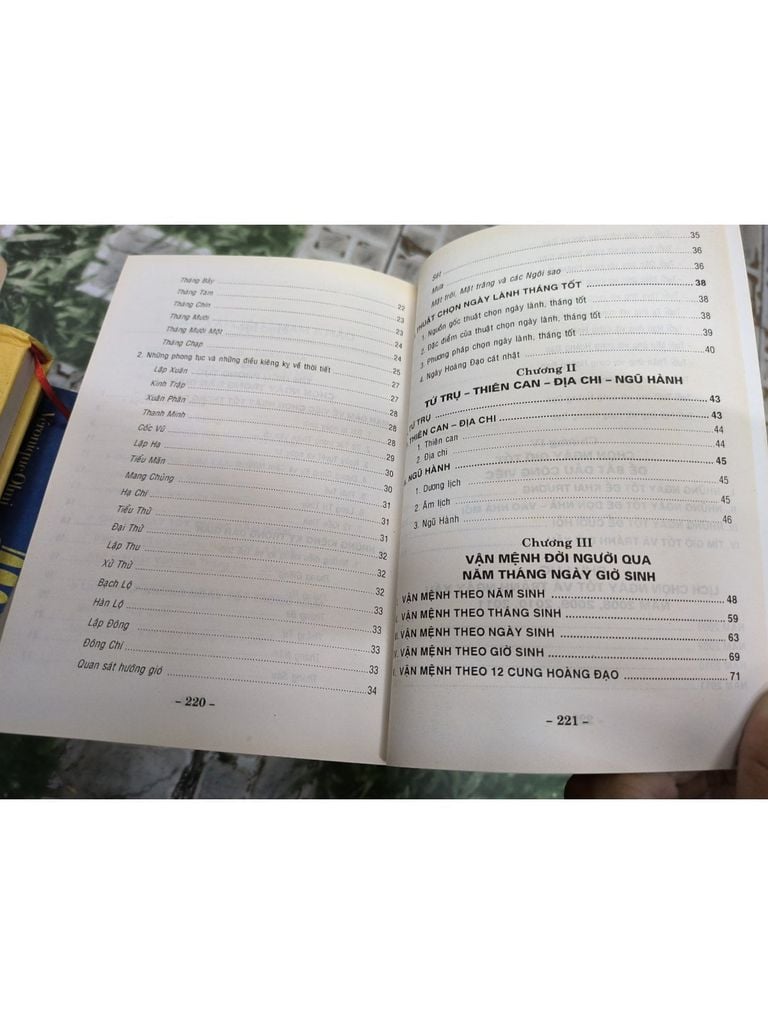 Tháng Bảy
Tháng Tám 22
Tháng Chín 23
Tháng Mười 23
Tháng Mười Một 24
Tháng Chạp 24
2. Những phong tục và những điều kiêng kỵ về thời tiết 25
Lập Xuân 26
Kinh Trập 27
Xuân Phân 28
Thanh Minh 28
Cốc Vũ 28
Lập Hạ 29
Tiểu Mãn 30
Mang Chủng 30
Hạ Chí 31
Tiểu Thử 31
Đại Thử 31
Lập Thu 32
Xử Thử 32
Bạch Lộ 32
Hàn Lộ 33
Lập Đông 33
Đông Chí 33
Quan sát hướng gió 34
– 220 –
Sét 35
Mưa 36
Mặt trời, Mặt trăng và các Ngôi sao 36
THUẬT CHỌN NGÀY LÀNH THÁNG TỐT 38
1. Nguồn gốc thuật chọn ngày lành, tháng tốt 38
2. Đặc điểm của thuật chọn ngày lành, tháng tốt 38
3. Phương pháp chọn ngày lành, tháng tốt 39
4. Ngày Hoàng Đạo cát nhật 40
Chương II
TỨ TRỤ – THIÊN CAN – ĐỊA CHI – NGŨ HÀNH
TỨ TRỤ 43
THIÊN CAN – ĐỊA CHI 43
1. Thiên can 44
2. Địa chi 44
NGŨ HÀNH 45
1. Dương lịch 45
2. Âm lịch 45
3. Ngũ Hành 46
Chương III
VẬN MỆNH ĐỜI NGƯỜI QUA
NĂM THÁNG NGÀY GIỜ SINH
VẬN MỆNH THEO NĂM SINH 48
VẬN MỆNH THEO THÁNG SINH 59
VẬN MỆNH THEO NGÀY SINH 63
VẬN MỆNH THEO GIỜ SINH 69
VẬN MỆNH THEO 12 CUNG HOÀNG ĐẠO 71
– 221 –
Véronique Olmi